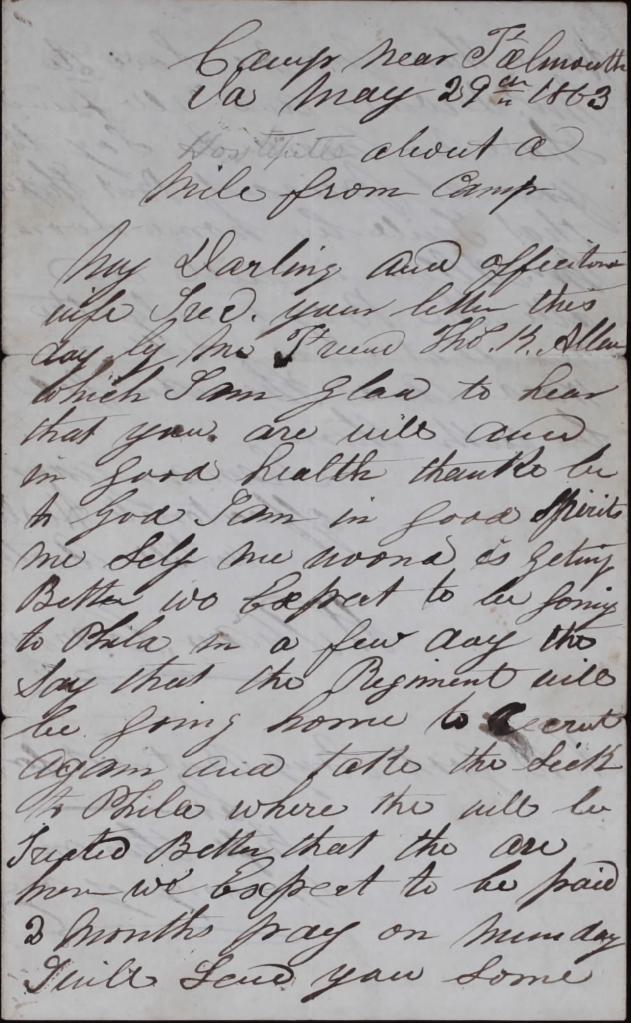 Camp near Falmouth
Va May 29th 1863
Hostpitle about a
Mile from Camp
My Darling and affecitona
wife I recd. your letter this
day by me Freend Thos. K. Allen
which I am glad to hear
that you are will and
in good health thanks be
to God I am in good spirits
me self me woond is geting
Better wo Expect to be going
to Phila in a few day the
say that the Regiment will
be going home to recrut
again and take the sick
to Phila where the will be
treated Better that the are
here we Expect to be paid
2 months pay on Munday
I will send you some